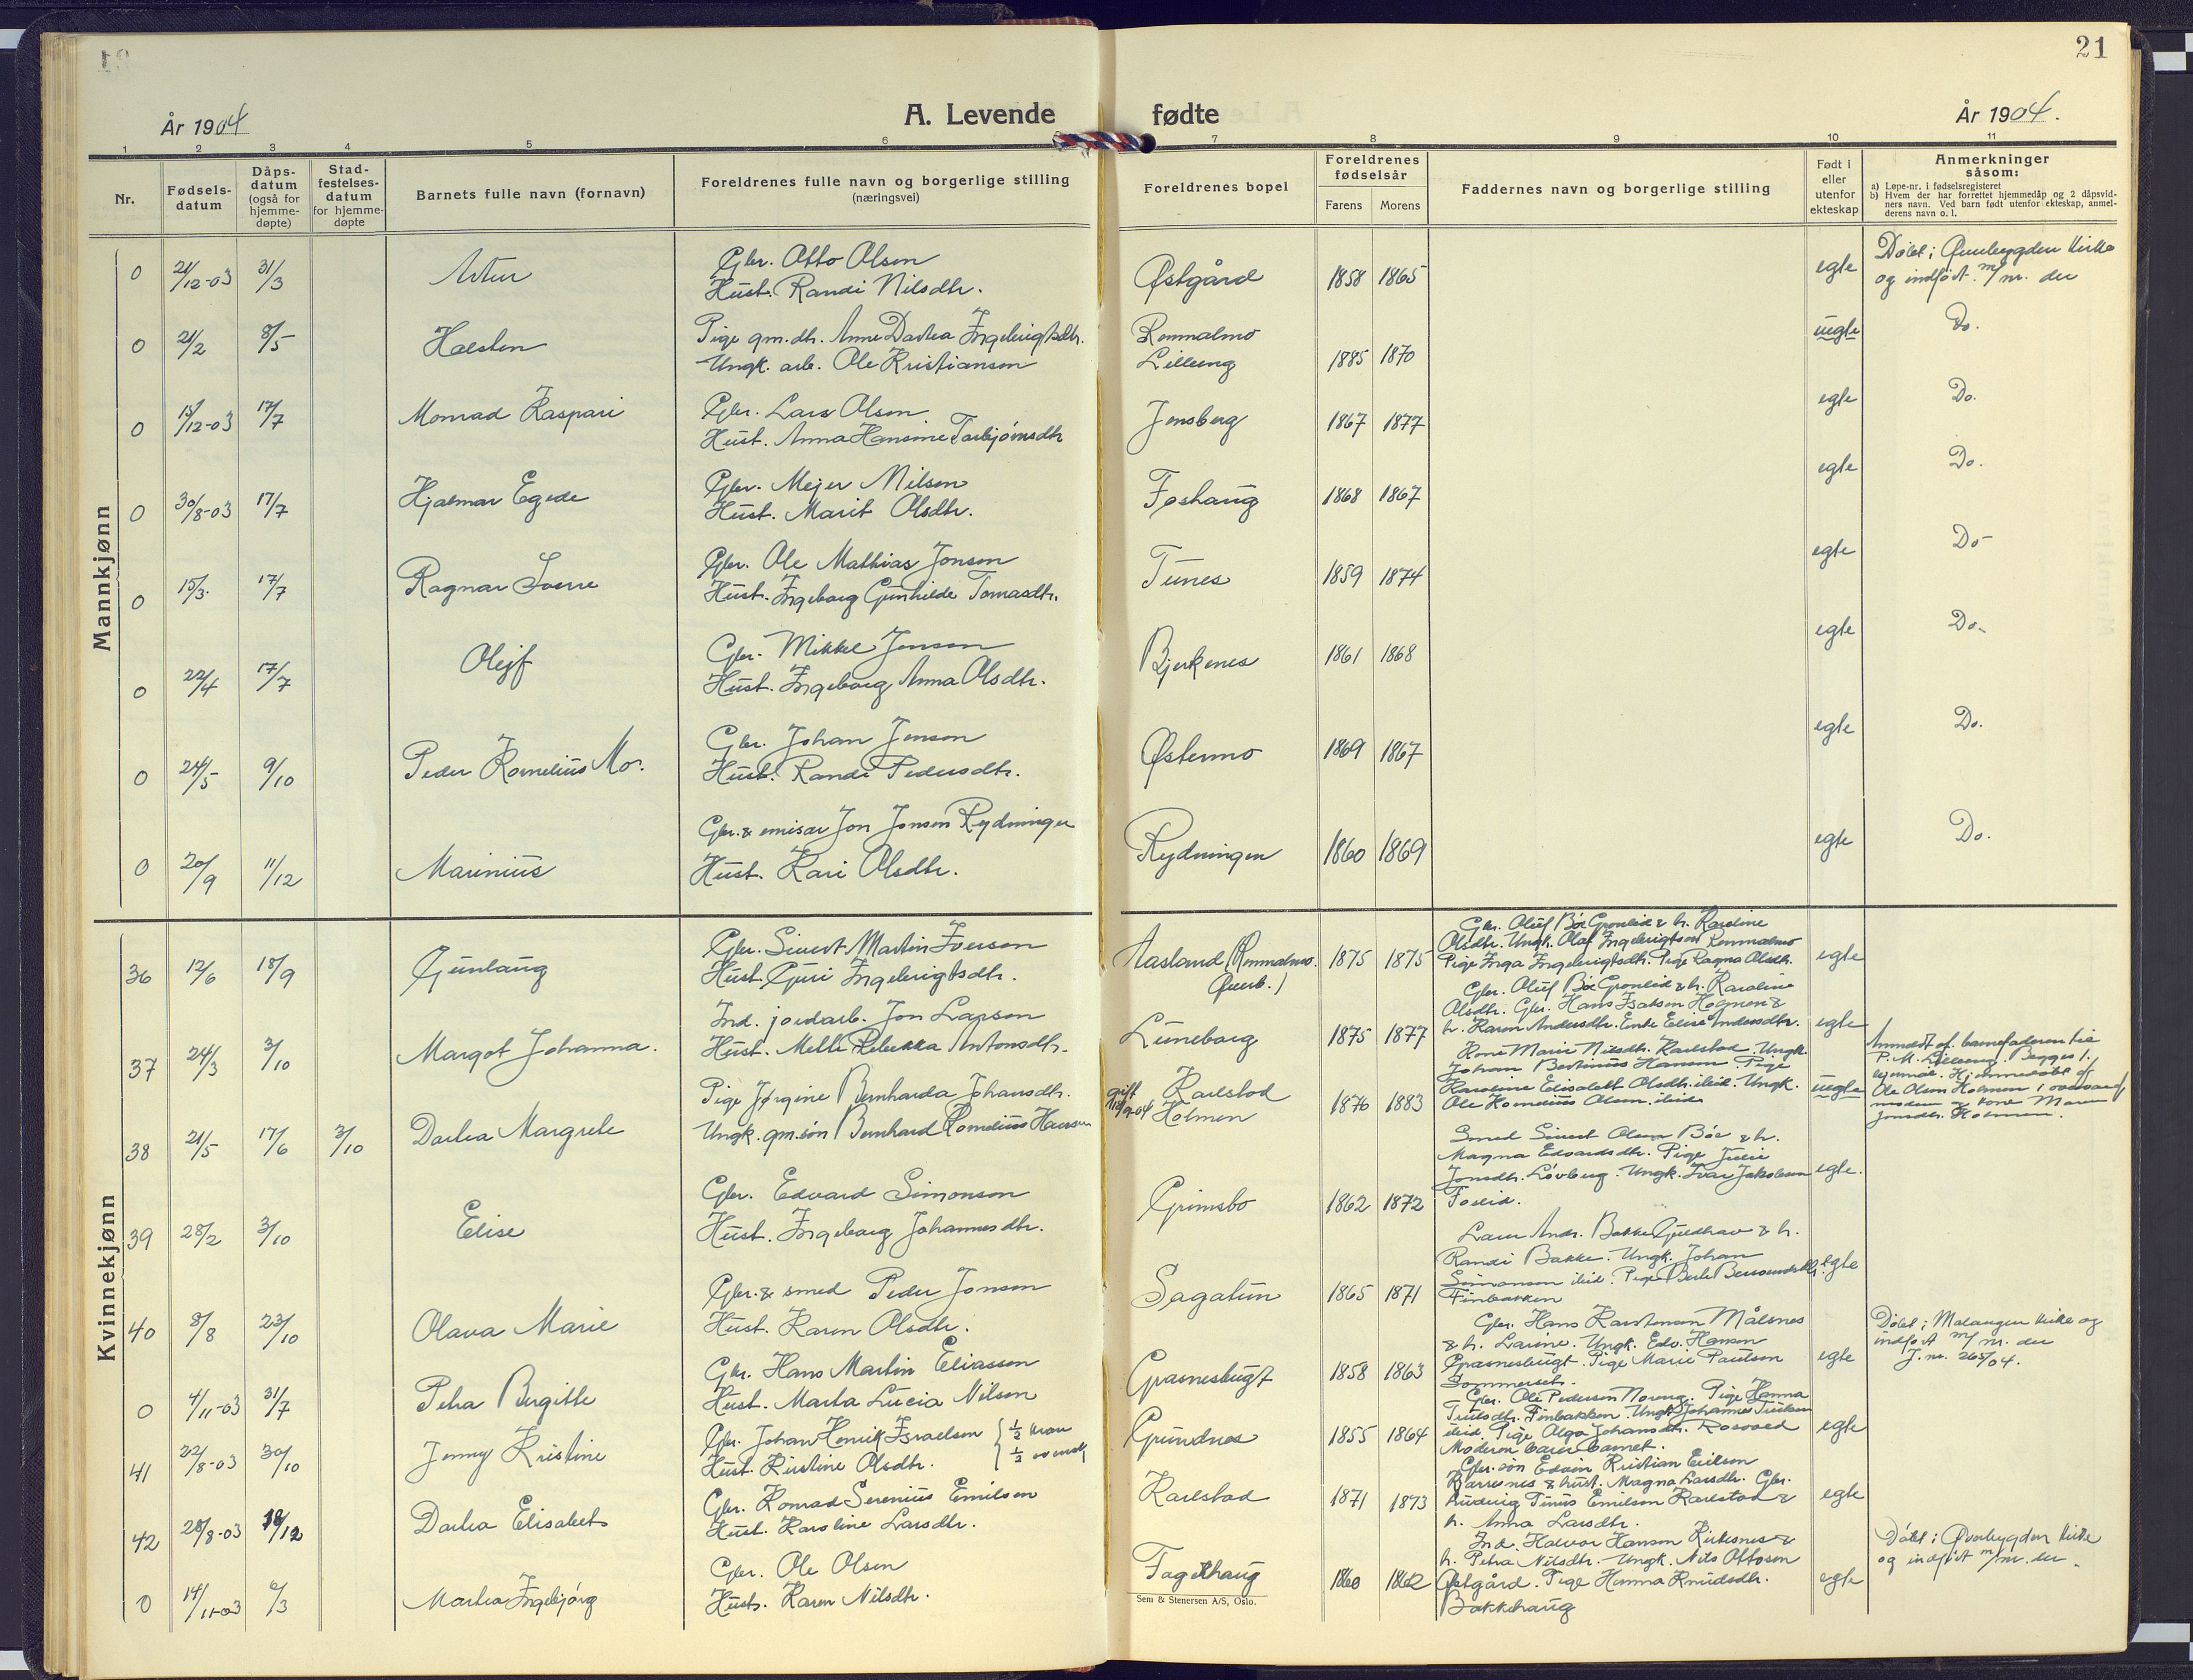 21
År 1904
A. Levende fødte
År 1904.
1 2 3 4 5 6 7 8 9 10 11
Nr.
Fødsels-
datum
Dåps-
datum
(også for
hjemme-
døpte)
Stad-
festelses-
datum
for hjemme-
døpte
Barnets fulle navn (fornavn)
Foreldrenes fulle navn og borgerlige stilling
(næringsvei)
Foreldrenes bopel
Foreldrenes
fødselsår
Farens Morens
Faddernes navn og borgerlige stilling
Født i
eller
utenfor
ekteskap
Anmerkninger
såsom:
a) Løpe-nr. i fødselsregisteret
b) Hvem der har forrettet hjemmedåp og 2 dåpsvid-
ners navn. Ved barn født utenfor ekteskap, anmel-
derens navn o. l.
Mannkjønn
0 21/12-03 31/3 Artur
Gbr. Otto Olsen
Hust. Randi Nilsdtr.
Østgård 1858 1865 egte
Døbt i Øverbygden kirke
og indført m/ nr. der
0 21/2 8/5 Halsten
Pige gm. dtr. Anne Dortea Ingebrigtsdtr.
Ungk. arb. Ole Kristiansen
Rommalmo
Lilleeng 1885 1870 uegte Do.
0 15/12-03 17/7 Monrad Kaspari
Gbr. Lars Olsen
Hust. Anna Hansine Torbjørnsdtr
Jensberg 1867 1877 egte Do.
0 30/8-03 17/7 Hjalmar Egede
Gbr. Mejer Nilsen
Hust. Marit Olsdtr.
Foshaug 1868 1867 egte Do.
0 15/3 17/7 Ragnar Sverre
Gbr. Ole Mathias Jonsen
Hust. Ingeborg Gunhilde Tomasdtr.
Tunes 1859 1874 egte Do-
0 22/4 17/7 Olejf
Gbr. Mikkel Jensen
Hust. Ingeborg Anna Olsdtr.
Bjerkenes 1861 1868 egte Do.
0 24/5 9/10 Peder Kornelius Mo.
Gbr. Johan Jensen
Hust. Randi Pedersdtr.
Østermo 1869 1867 egte Do.
0 20/9 11/12 Marinius
Gbr. & emisær Jon Jonsen Rydningen
Hust. Kari Olsdtr.
Rydningen 1860 1869 egte Do.
Kvinnekjønn
36 12/6 18/9 Gunlaug
Gbr. Sivert Martin Iversen
Hust. Guri Ingebrigtsdtr.
Aasland (Rommalmo.
Øverb.) 1875 1875
Gbr. Oluf Bøe Grønlid & h. Karoline
Olsdtr. Ungk. Olaf Ingebrigtsen Rommalmo
Pige Inga Ingebrigtsdtr. Pige Ragna Olsdtr.
egte
37 24/3 3/10 Margot Johanna.
Ind. jordarb. Jon Larsen
Hust. Mette Rebekka Antonsdtr.
Luneborg 1875 1877
Gbr. Oluf Bøe Grønlid & h. Karoline
Olsdtr. Gbr. Hans Isaksen Holmen &
h. Karen Andersdtr. Enke Elise Andersdtr.
egte
38 21/5 17/6 3/10 Dortea Margrete
Pige Jørgine Bernharda Johansdtr.
Ungk. gm. søn Bernhard Kornelius Hansen
gift 12/9-04
Karlstad
Holmen 1870 1883
Kone Marie Nilsdtr. Karlstad. Ungk.
Johan Bertinius Hansen. Pige
Karoline Elisabet Olsdtr. ibid. Ungk.
Ole Kornelius Olsen. ibid.
uegte
Anmeldt af barnefaderen til
P. M. Lilleeng. Begges 1.
leiermål. Hjemmedøbt af
Ole Olsen Holmen i overvær af
moderen & kone Maren
Jonsdtr. Holmen.
39 28/2 3/10 Elise
Gbr. Edvard Simonsen
Hust. Ingeborg Johannesdtr.
Grimsbo 1862 1872
Smed Sivert Olsen Bøe & h.
Magna Edvardsdtr. Pige Julie
Jonsdtr. Løvberg. Ungk. Ivar Jakobsen
Foslid.
egte.
40 8/8 23/10 Olava Marie
Gbr. & smed Peder Jonsen
Hust. Karen Olsdtr.
Sagatun 1865 1871
Lars Andr. Bakke Guldhav & h.
Randi Bakke. Ungk. Johan
Simonsen ibid. Pige Berte Berntsdtr.
Finbakken
egte
0 4/11-03 31/7 Petra Bergitte
Gbr. Hans Martin Eliassen
Hust. Marta Lucia Nilsen
Grasnesbugt 1858 1863
Gbr. Hans Karstensen Målsnes
& h. Larine. Ungk. Edv. Hansen
Grasnesbugt. Pige Marie Paulsen
Sommerset.
egte
Døbt i Malangen kirke og
indført m/ nr. der
J. nr. 265/04.
41 22/8-03 30/10 Jenny Kristine
Gbr. Johan Henrik Israelsen
Hust. Kirstine Olsdtr.
1/2 kvæn
1/2 svensk
Grundnes 1855 1864
Gbr. Ole Pedersen Moeng. Pige Hanna
Trulsdtr. Finbakken. Ungk. Johannes Trulsen
ibid. Pige Olga Johansdtr. Rosvoll
Moderen barer barnet.
egte
42 28/8-03 18/12 Dortea Elisabet
Gbr. Konrad Serenius Emilsen
Hust. Karoline Larsdtr.
Karlstad 1871 1873
Gbr. søn Edvin Kristian Eriksen
Karrenes & hust. Magna Larsdtr. Gbr.
Ludvig Tinus Emilsen Karlstad &
h. Anna Larsdtr.
egte
0 14/11-03 6/3 Martea Ingebjørg
Gbr. Ole Olsen
Hust. Karen Nilsdtr.
Fagerhaug 1860 1862
Ind. Halvor Hansen Kirkesnes &
h. Petra Nilsdtr. Ungk. Nils Ottosen
Østgård. Pige Hanna Knudsdtr.
Bakkehaug
egte
Døbt i Øverbygden kirke
og indført m/ nr. der.
Sem & Stenersen A/S, Oslo.